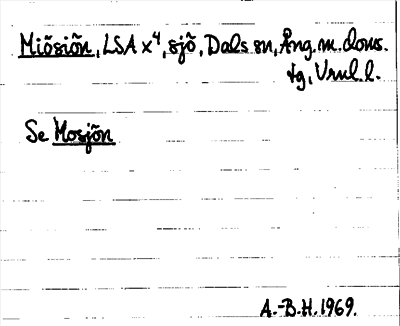 Miösiön, LSA x⁴, sjö, Dals sn, Ång. m. doms.
tg, Vnrl. l.
Se Mosjön
A.-B.H. 1969.